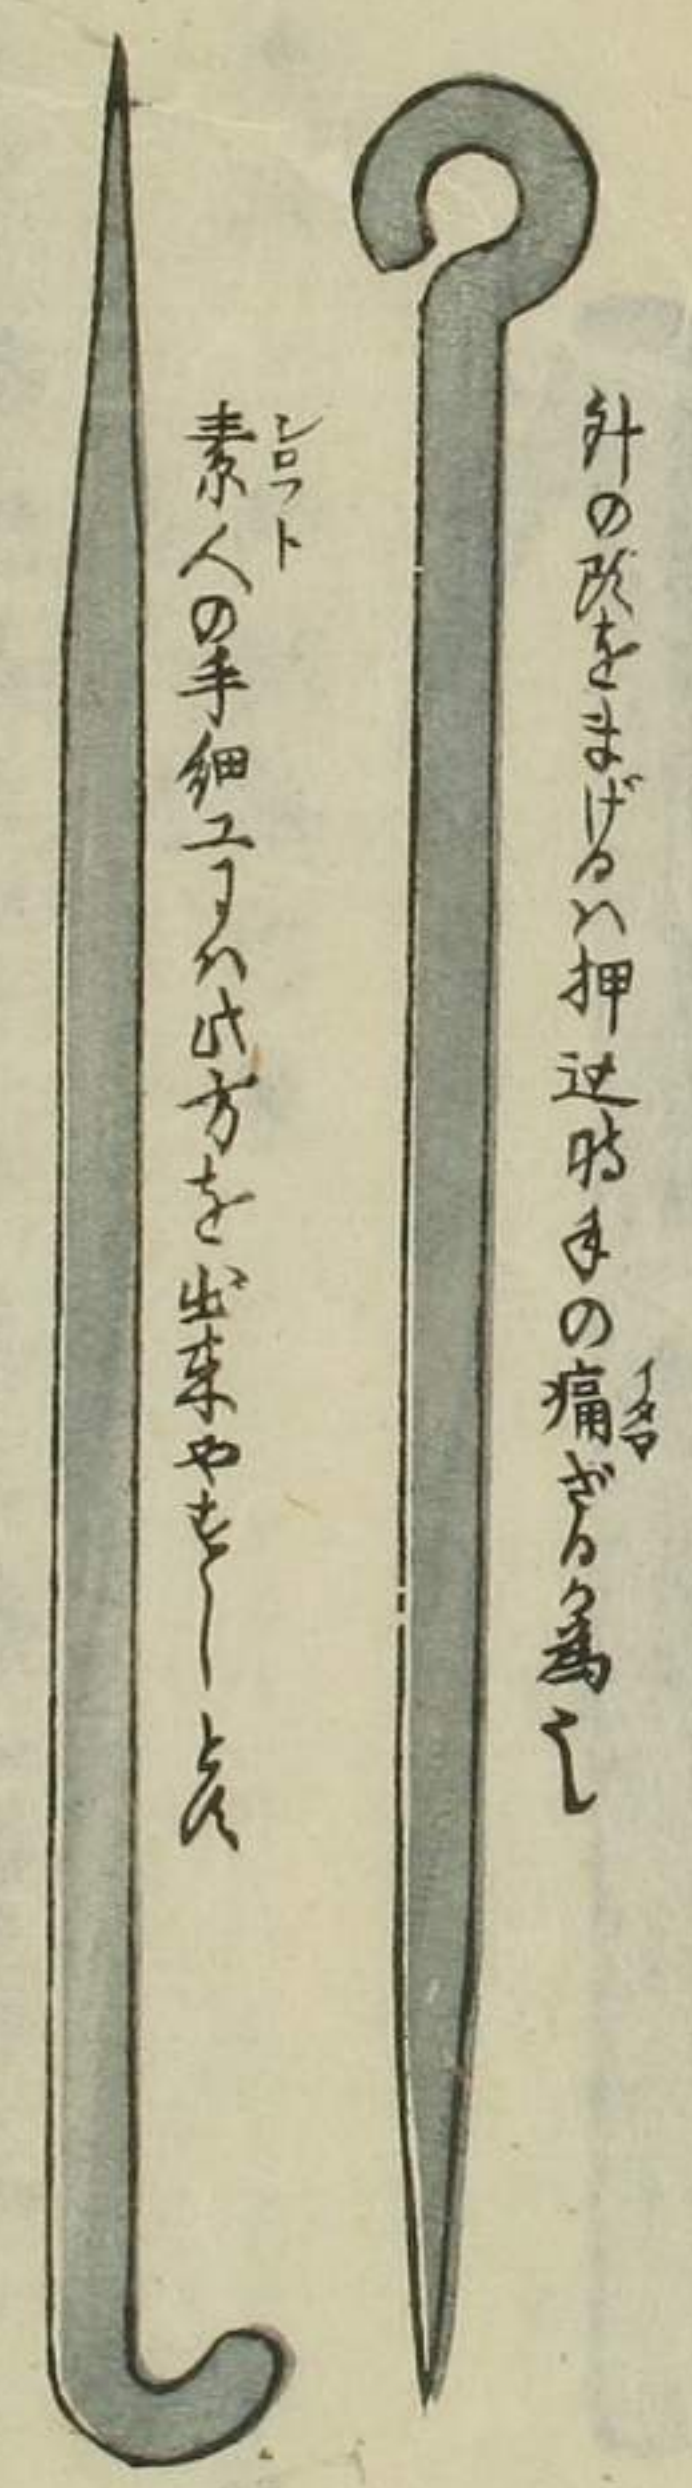 針の頭をまげるハ押込時手の痛ざるか為也
イタマ
素人の手細工にハ此方を出来やすしとス
シロフト